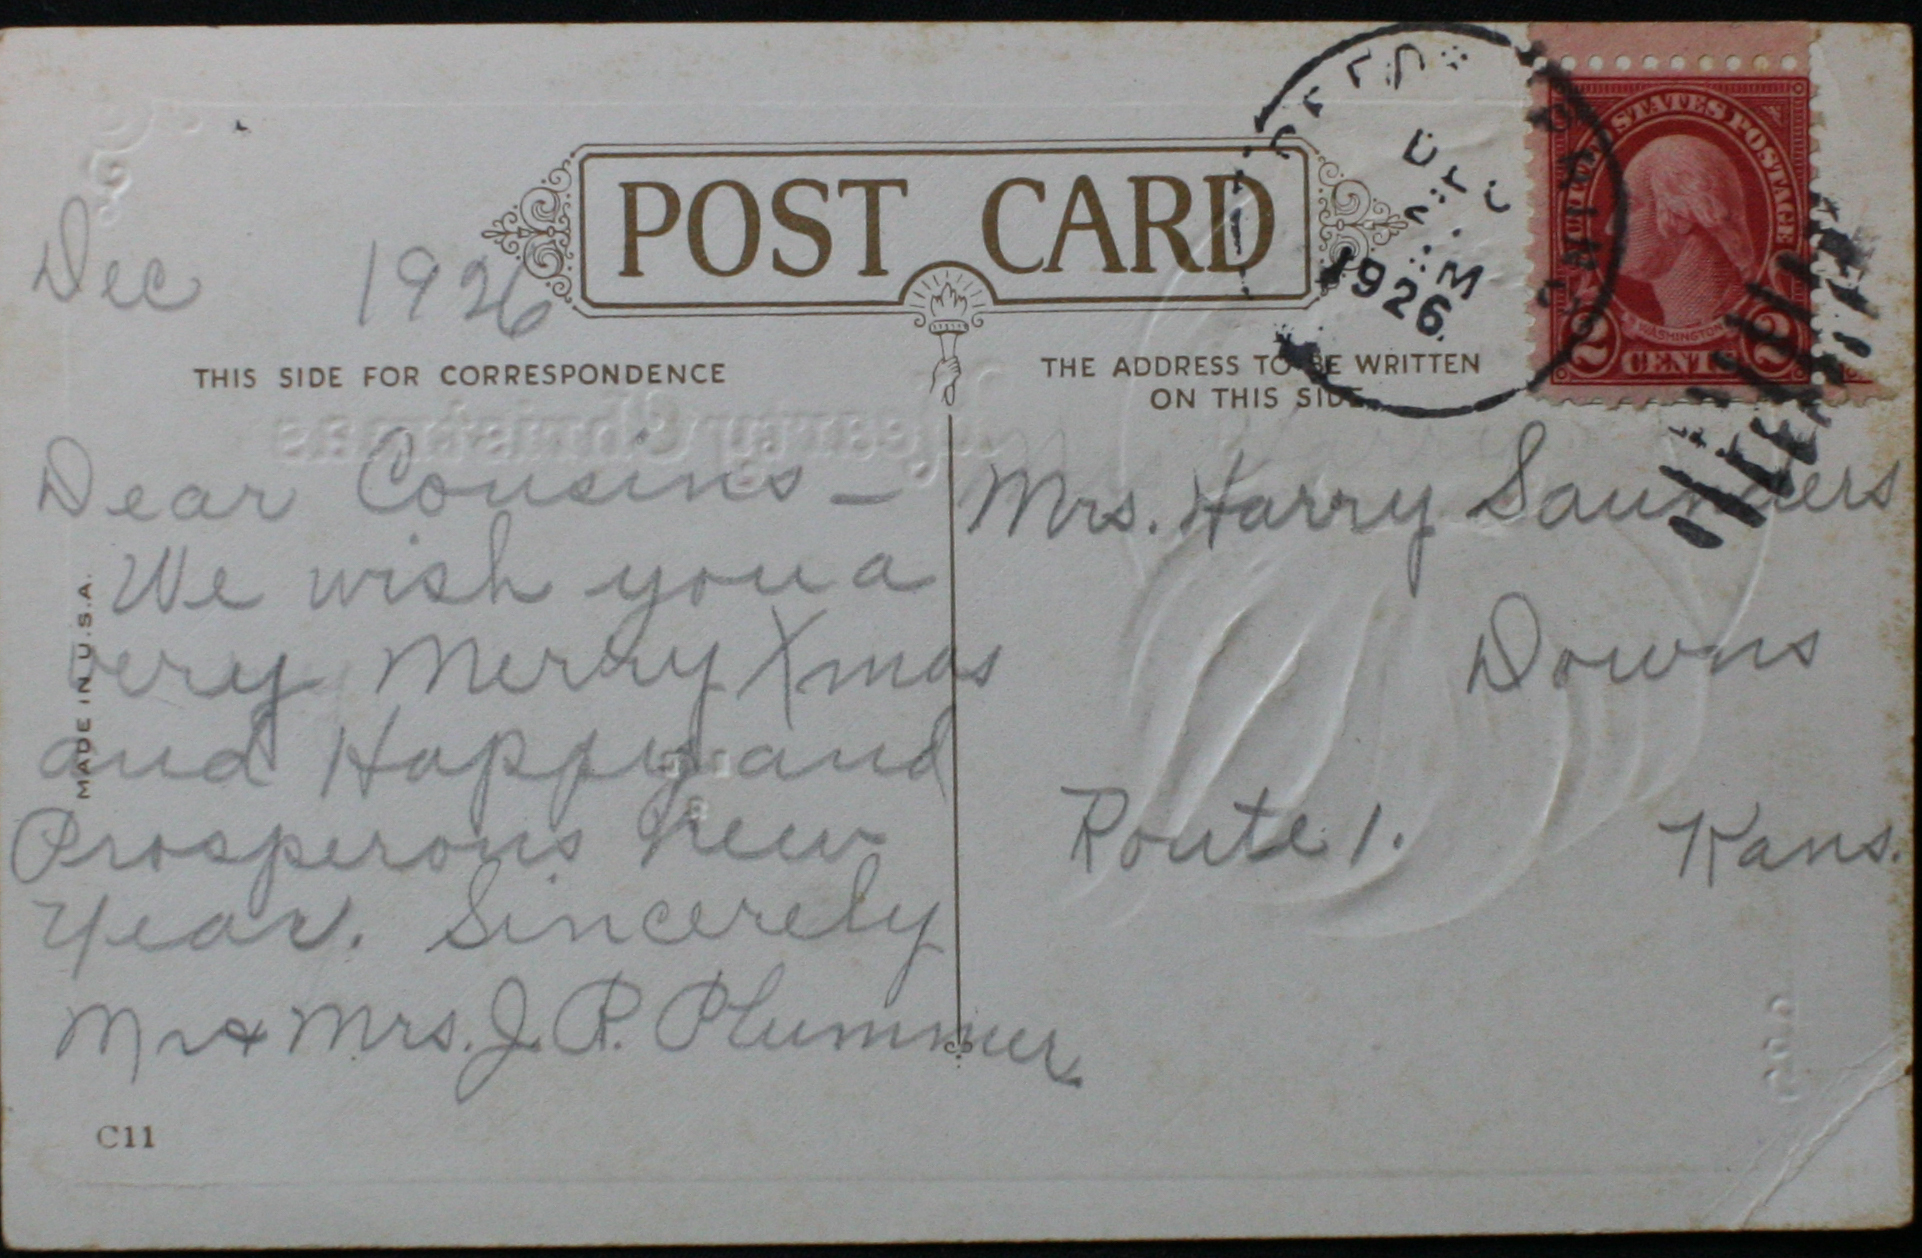 POST CARD
Dec 1926
THIS SIDE FOR CORRESPONDENCE
Dear Cousins –
We wish you a
very Merry Xmas
and Happy and
Prosperous New
Year. Sincerely
Mr & Mrs. J. P. Plummer
MADE IN U.S.A.
C11
THE ADDRESS TO BE WRITTEN
ON THIS SIDE
Mrs. Harry Saunders
Downs
Route 1. Kans.
DEC
M
1926
UNITED STATES POSTAGE
WASHINGTON
2 CENTS 2
Hearty Christmas